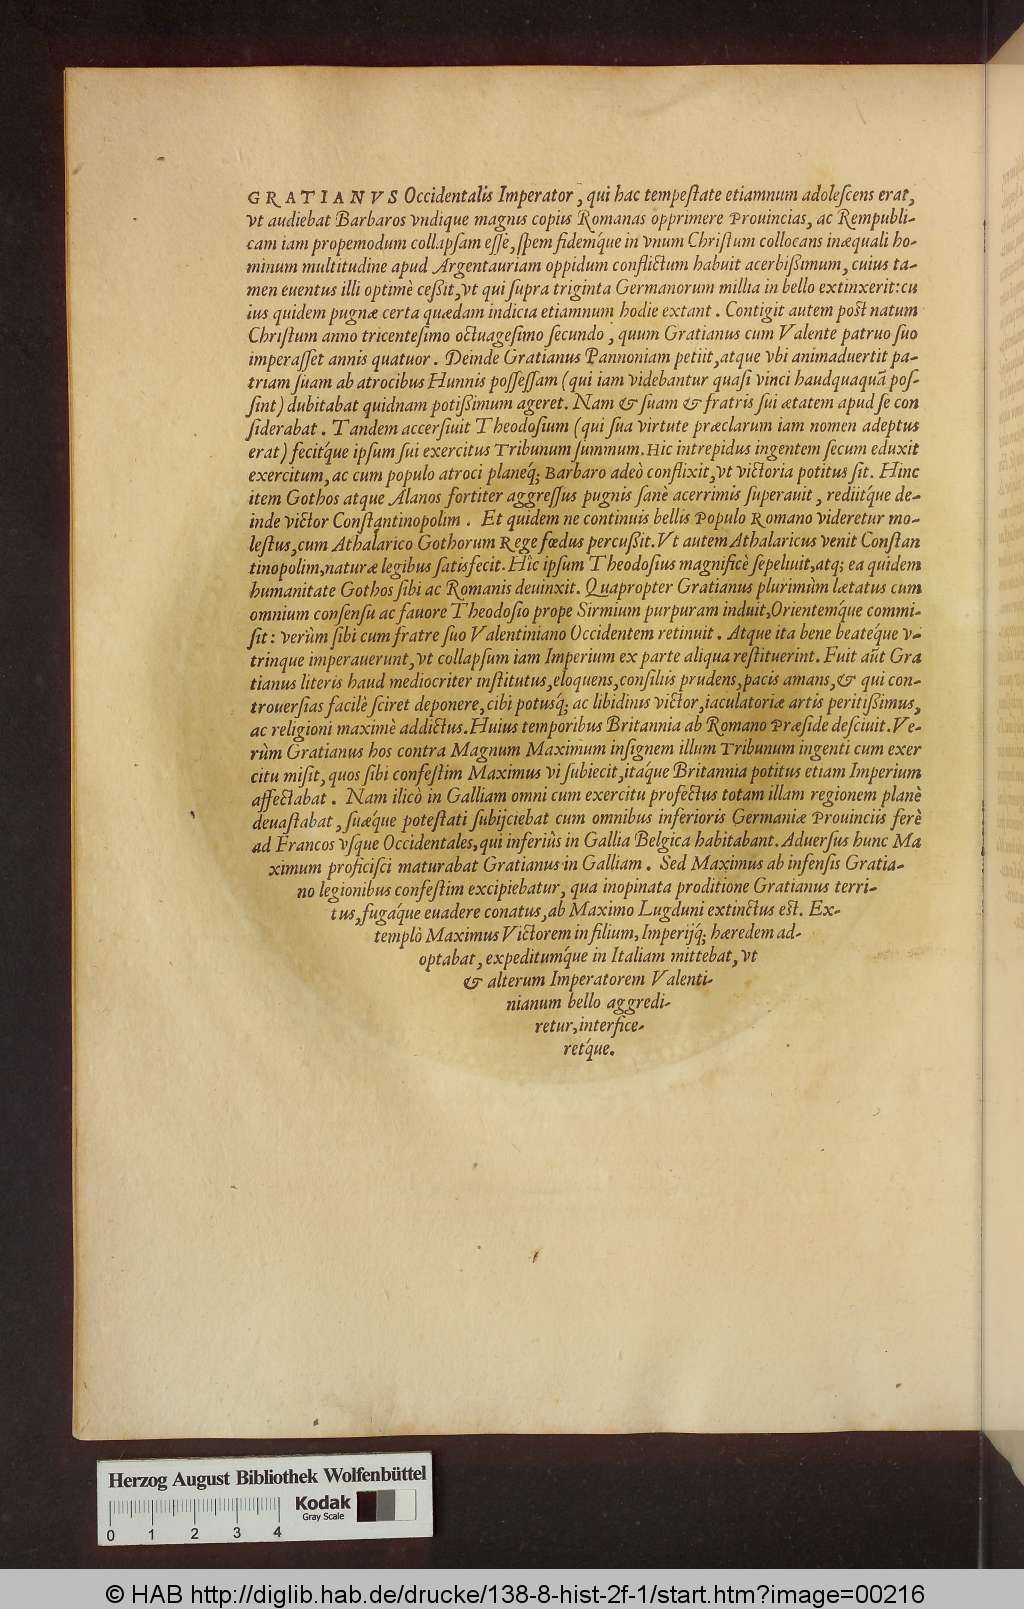 GRATIANVS Occidentalis Imperator, qui hac tempeſtate etiamnum adoleſcens erat,
vt audiebat Barbaros vndique magnis copiis Romanas opprimere Prouincias, ac Rempubli-
cam iam propemodum collapſam eſſe, ſpem fidemq́ue in vnum Chriſtum collocans inæquali ho-
minum multitudine apud Argentauriam oppidum conflictum habuit acerbißimum, cuius ta-
men euentus illi optimè ceßit, vt qui ſupra triginta Germanorum millia in bello extinxerit: cu
ius quidem pugnæ certa quædam indicia etiamnum hodie extant. Contigit autem poſt natum
Chriſtum anno tricenteſimo octuageſimo ſecundo, quum Gratianus cum Valente patruo ſuo
imperaſſet annis quatuor. Deinde Gratianus Pannoniam petiit, atque vbi animaduertit pa-
triam ſuam ab atrocibus Hunnis poſſeſſam (qui iam videbantur quaſi vinci haudquaquā poſ-
ſint) dubitabat quidnam potißimum ageret. Nam & ſuam & fratris ſui ætatem apud ſe con
ſiderabat. Tandem accerſiuit Theodoſium (qui ſua virtute præclarum iam nomen adeptus
erat) fecitq́ue ipſum ſui exercitus Tribunum ſummum. Hic intrepidus ingentem ſecum eduxit
exercitum, ac cum populo atroci planeq́; Barbaro adeò conflixit, vt victoria potitus ſit. Hinc
item Gothos atque Alanos fortiter aggreſſus pugnis ſanè acerrimis ſuperauit, rediitq́ue de-
inde victor Conſtantinopolim. Et quidem ne continuis bellis Populo Romano videretur mo-
leſtus, cum Athalarico Gothorum Rege fœdus percußit. Vt autem Athalaricus venit Conſtan
tinopolim, naturæ legibus ſatisfecit. Hîc ipſum Theodoſius magnificè ſepeliuit, atq; ea quidem
humanitate Gothos ſibi ac Romanis deuinxit. Quapropter Gratianus plurimùm lætatus cum
omnium conſenſu ac fauore Theodoſio prope Sirmium purpuram induit, Orientemq́ue commi-
ſit: verùm ſibi cum fratre ſuo Valentiniano Occidentem retinuit. Atque ita bene beateq́ue v-
trinque imperauerunt, vt collapſum iam Imperium ex parte aliqua reſtituerint. Fuit aūt Gra
tianus literis haud mediocriter inſtitutus, eloquens, conſiliis prudens, pacis amans, & qui con-
trouerſias facilè ſciret deponere, cibi potusq́; ac libidinis victor, iaculatoriæ artis peritißimus,
ac religioni maximè addictus. Huius temporibus Britannia ab Romano Præſide deſciuit. Ve-
rùm Gratianus hos contra Magnum Maximum inſignem illum Tribunum ingenti cum exer
citu miſit, quos ſibi confeſtim Maximus vi ſubiecit, itaq́ue Britannia potitus etiam Imperium
affectabat. Nam ilicò in Galliam omni cum exercitu profectus totam illam regionem planè
deuaſtabat, ſuæq́ue poteſtati ſubijciebat cum omnibus inferioris Germaniæ Prouinciis ferè
ad Francos vſque Occidentales, qui inferiùs in Gallia Belgica habitabant. Aduerſus hunc Ma
ximum proficiſci maturabat Gratianus in Galliam. Sed Maximus ab infenſis Gratia-
no legionibus confeſtim excipiebatur, qua inopinata proditione Gratianus terri-
tus, fugaq́ue euadere conatus, ab Maximo Lugduni extinctus eſt. Ex-
templò Maximus Victorem in filium, Imperijq́; hæredem ad-
optabat, expeditumq́ue in Italiam mittebat, vt
& alterum Imperatorem Valenti-
nianum bello aggredi-
retur, interfice-
retq́ue.
Herzog August Bibliothek Wolfenbüttel
Kodak
Gray Scale
0 1 2 3 4
© HAB http://diglib.hab.de/drucke/138-8-hist-2f-1/start.htm?image=00216